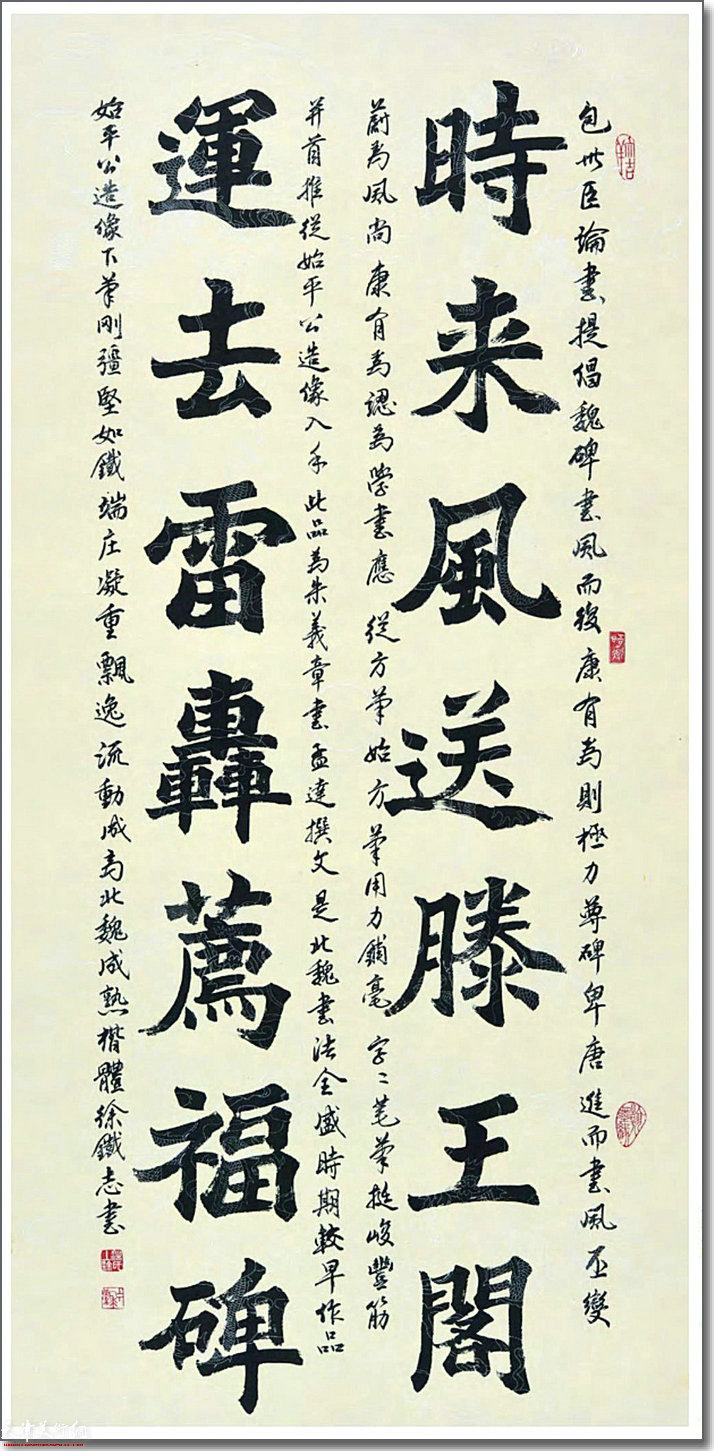 包世臣論書提倡魏碑書風而後康有為則極力尊碑卑唐進而書風丕變
時来風送滕王閣
蔚為風尚康有為認為學書應從方筆始方筆用力鋪毫字〻筆挺峻豐筋
并首推從始平公造像入手此品為朱義章書孟達撰文是北魏書法全盛時期較早作品
運去雷轟薦福碑
始平公造像下筆刚彊堅如鐵端庄凝重飄逸流動成為北魏成熟楷體徐鐵志書